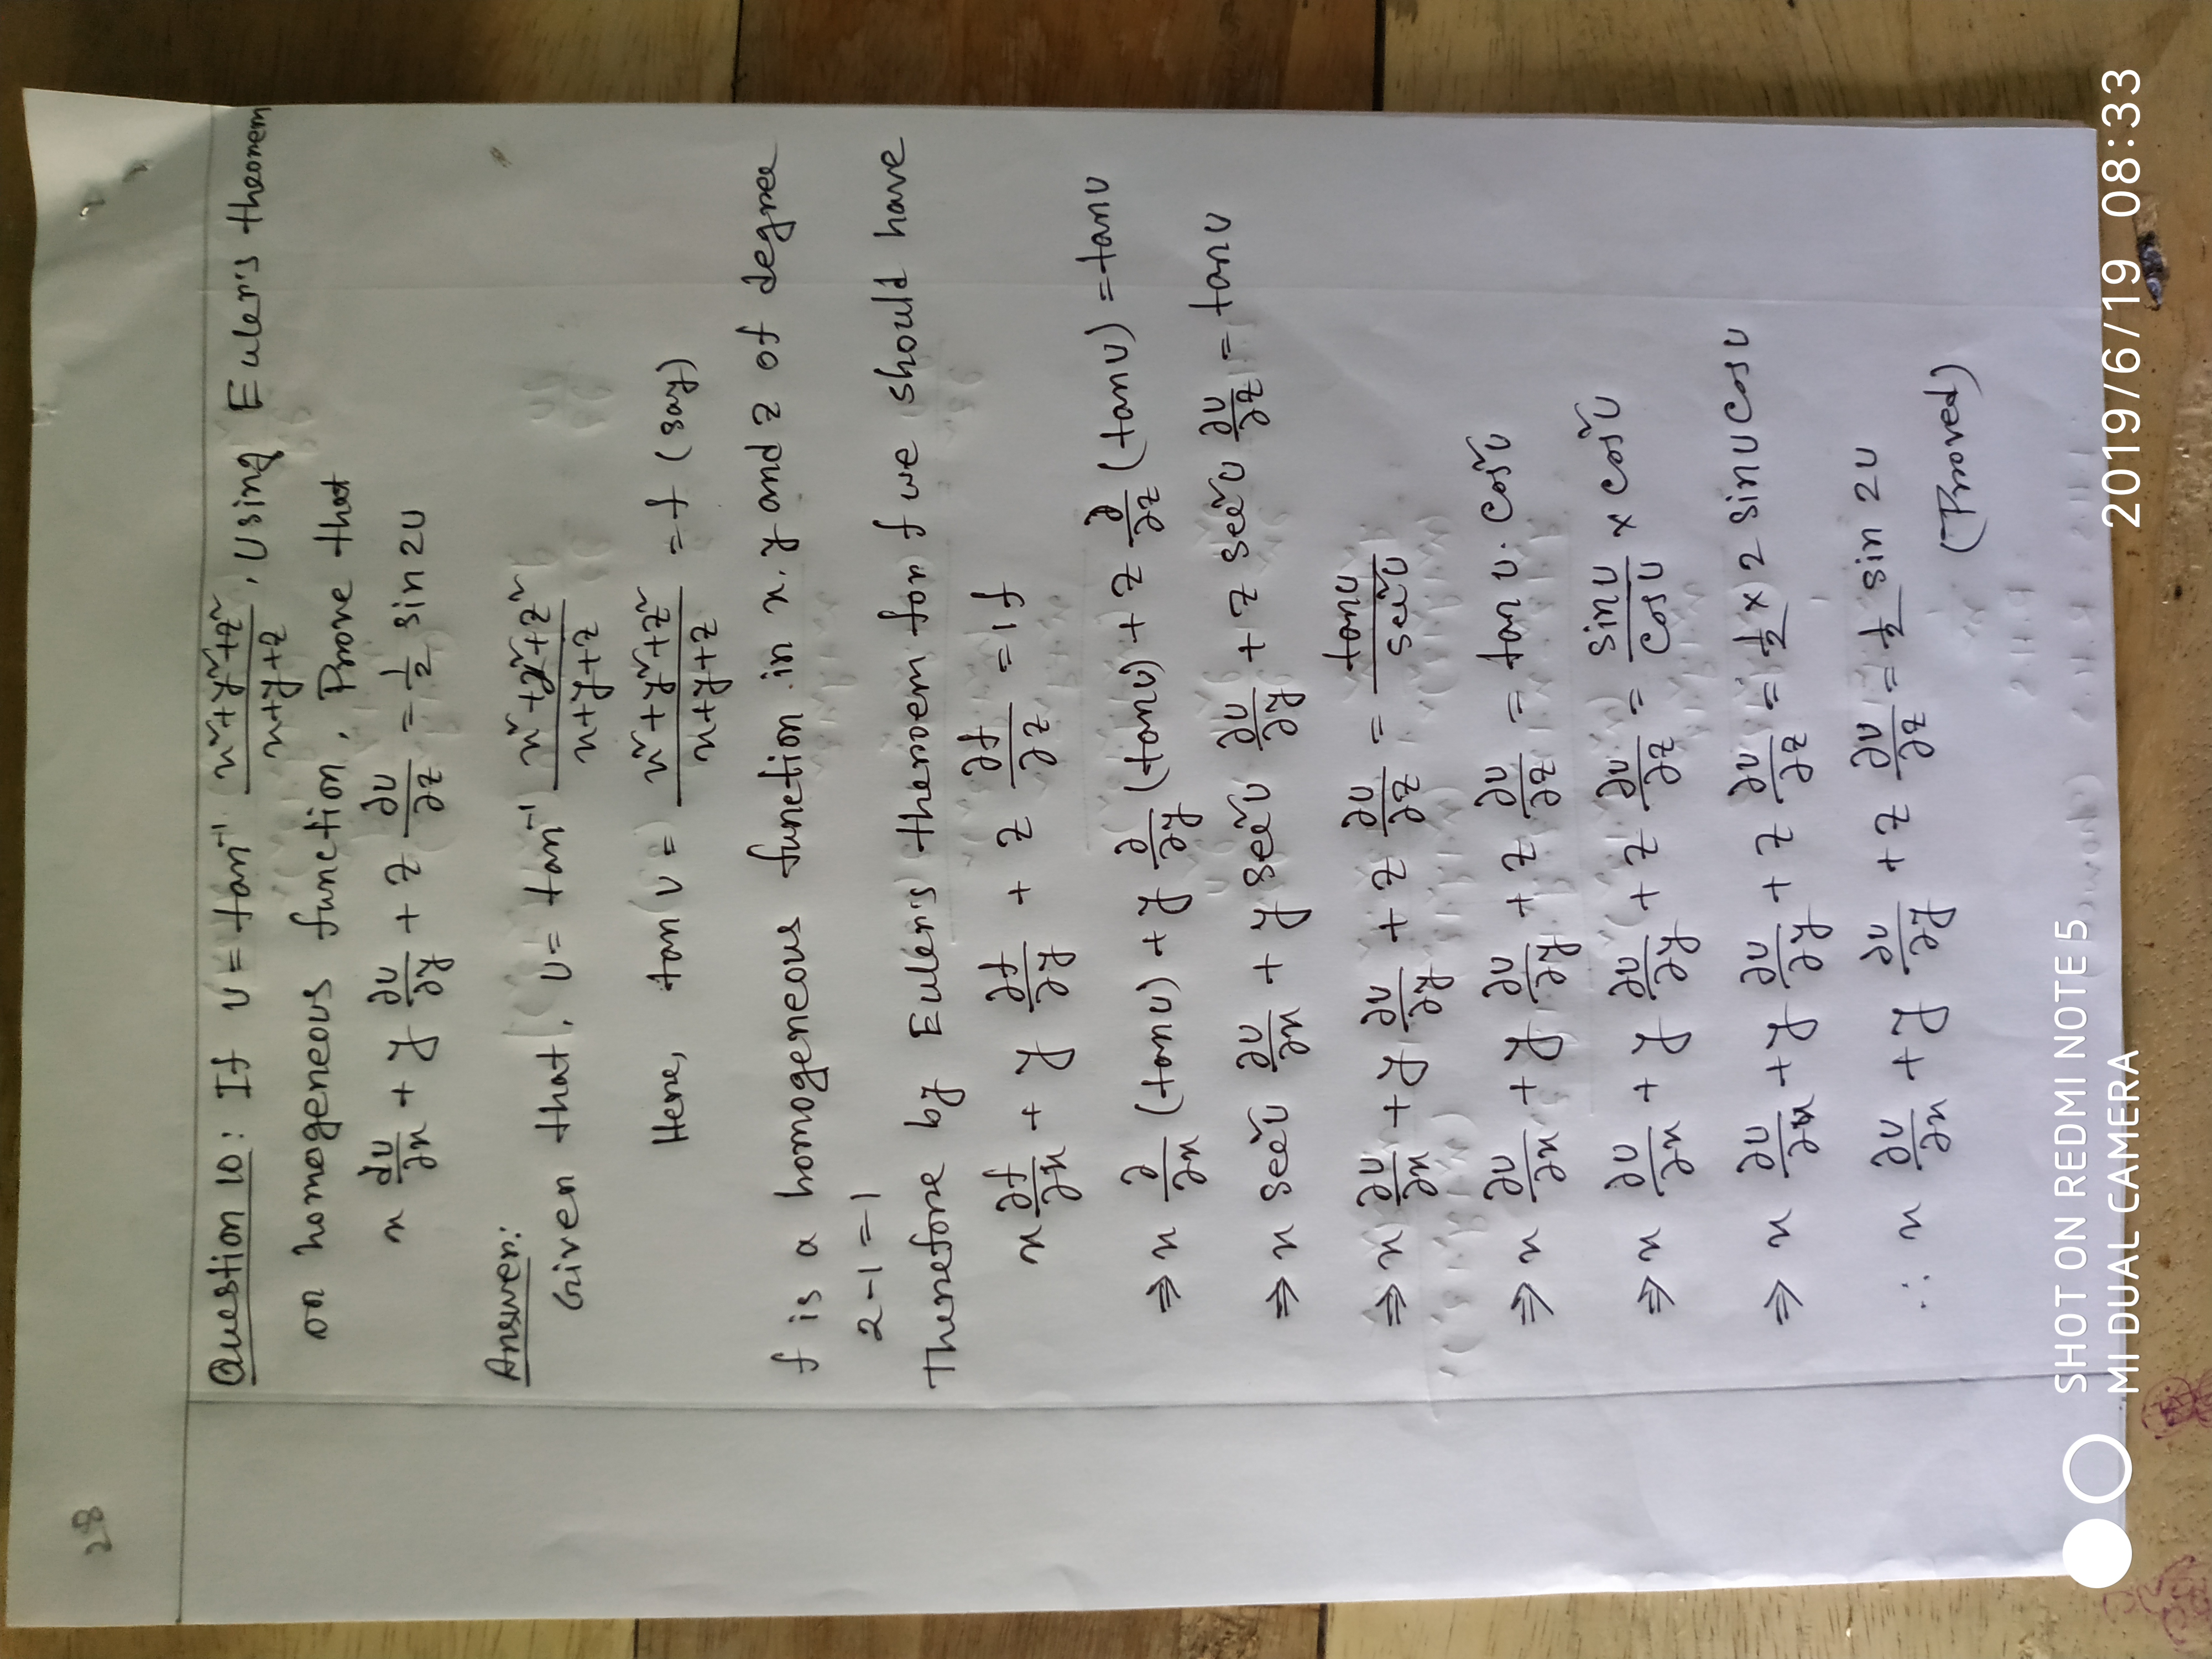 28
Question 10: If U = tan⁻¹ (x²+y²+z²)/(x+y+z), Using Euler's theorem
on homogeneous function, Prove that
x ∂U/∂x + y ∂U/∂y + z ∂U/∂z = 1/2 sin 2U
Answer:
Given that, U = tan⁻¹ (x²+y²+z²)/(x+y+z)
Here, tan U = (x²+y²+z²)/(x+y+z) = f (say)
f is a homogeneous function in x, y and z of degree
2-1=1
Therefore by Euler's theroem for f we should have
x ∂f/∂x + y ∂f/∂y + z ∂f/∂z = 1 f
⇒ x ∂/∂x (tan U) + y ∂/∂y (tan U) + z ∂/∂z (tan U) = tan U
⇒ x sec²U ∂U/∂x + y sec²U ∂U/∂y + z sec²U ∂U/∂z = tan U
⇒ x ∂U/∂x + y ∂U/∂y + z ∂U/∂z = tan U/sec²U
⇒ x ∂U/∂x + y ∂U/∂y + z ∂U/∂z = tan U . cos²U
⇒ x ∂U/∂x + y ∂U/∂y + z ∂U/∂z = sin U/cos U × cos²U
⇒ x ∂U/∂x + y ∂U/∂y + z ∂U/∂z = 1/2 × 2 sin U cos U
∴ x ∂U/∂x + y ∂U/∂y + z ∂U/∂z = 1/2 sin 2U
(Proved)
SHOT ON REDMI NOTE 5
MI DUAL CAMERA
2019/6/19 08:33